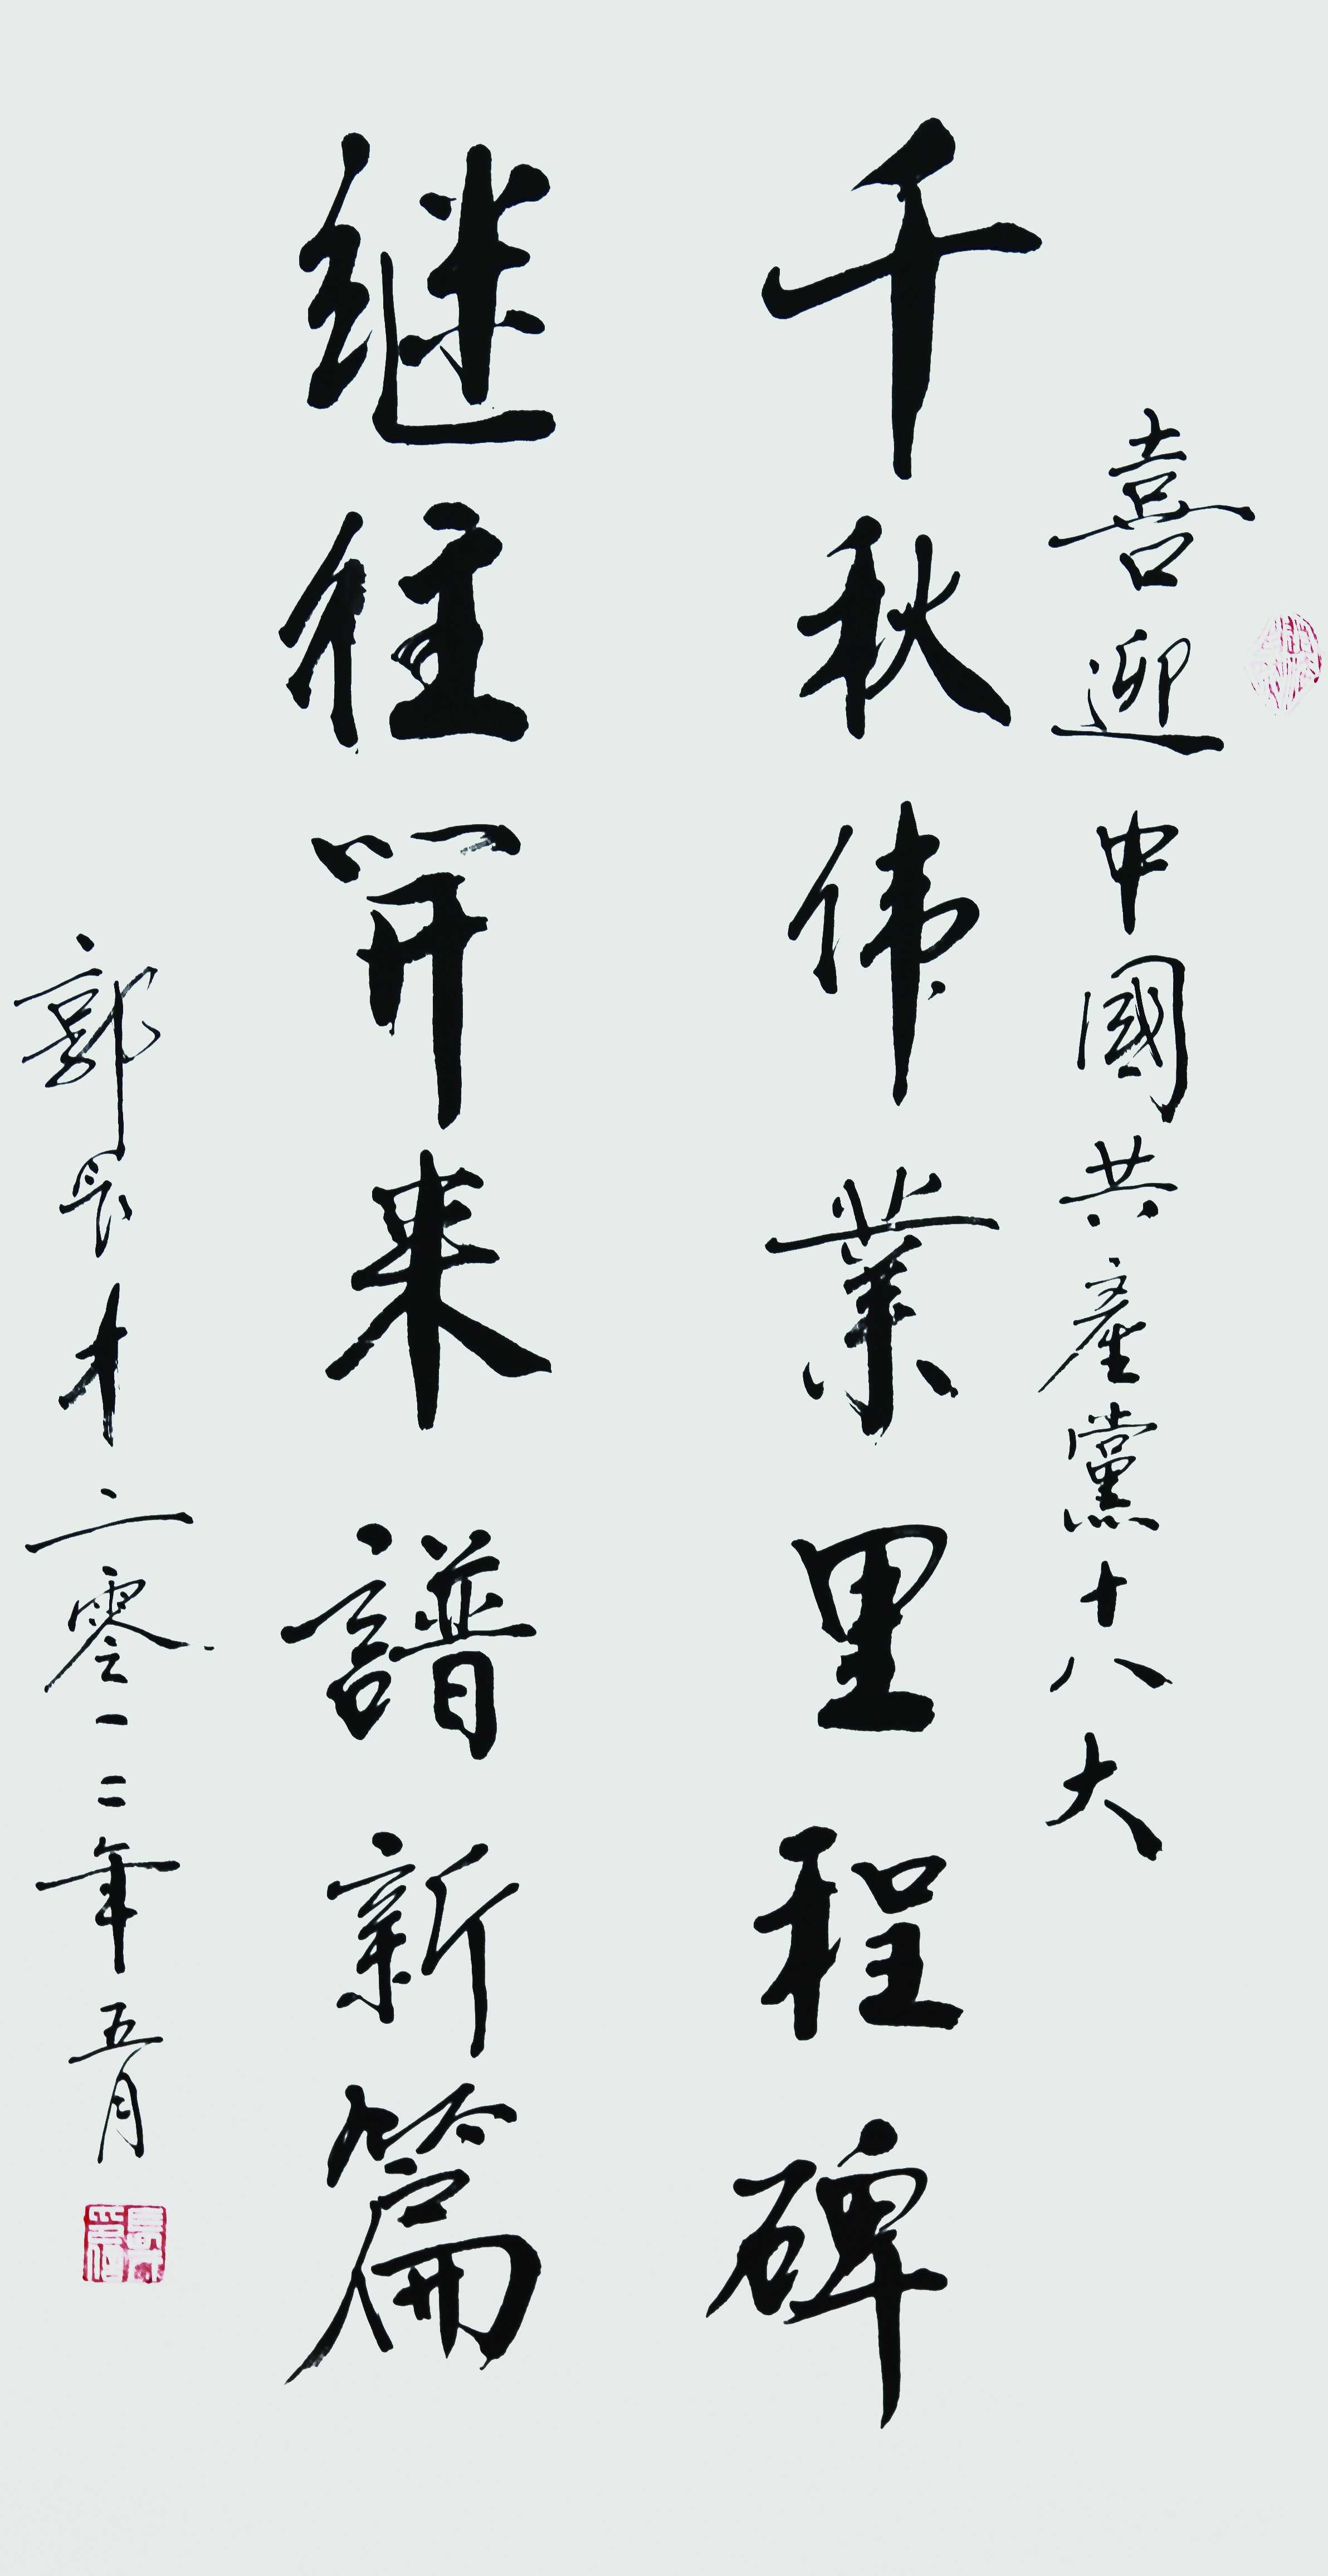 喜迎中國共產黨十八大
千秋伟業里程碑
继往開来譜新篇
郭長才二零一二年五月